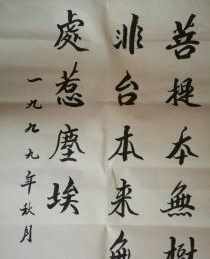 菩提本無樹
非台本来無
處惹塵埃
一九九九年秋月